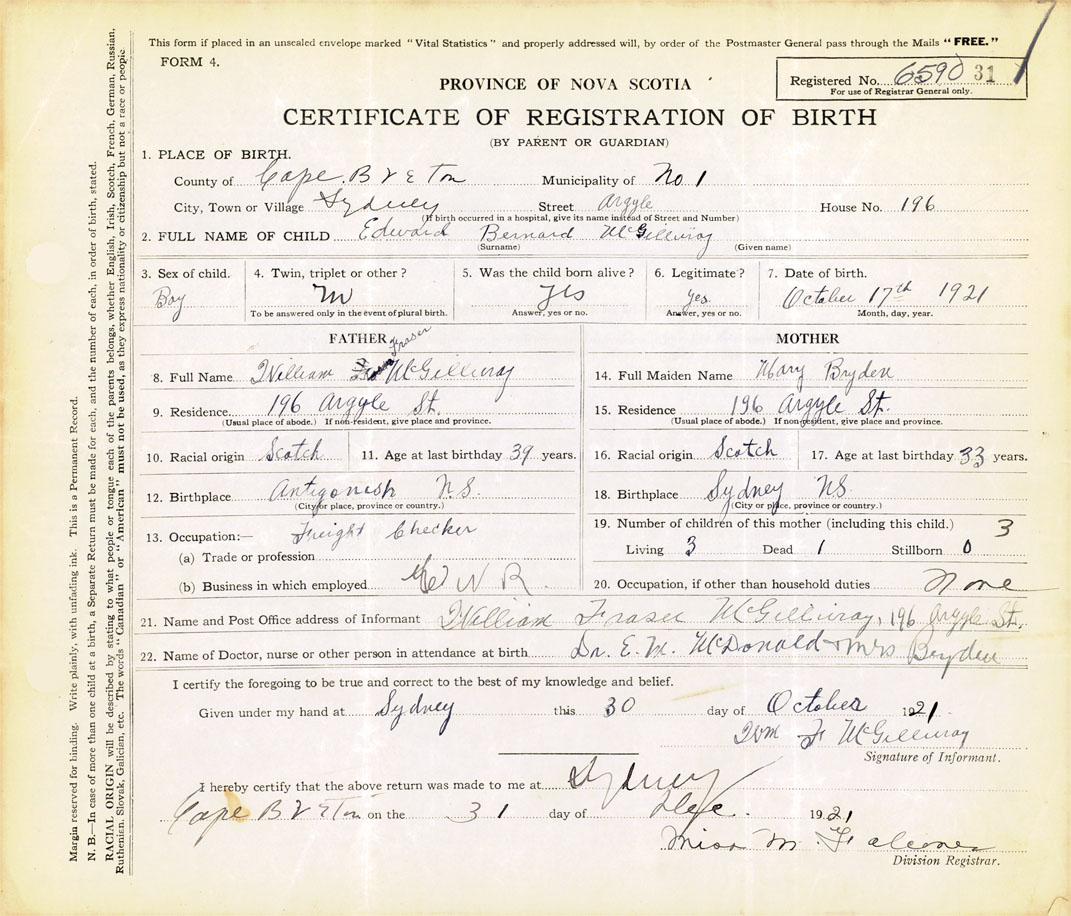 This form if placed in an unsealed envelope marked "Vital Statistics" and properly addressed will, by order of the Postmaster General pass through the Mails "FREE."
FORM 4.
Registered No. 6590 31
For use of Registrar General only.
PROVINCE OF NOVA SCOTIA
CERTIFICATE OF REGISTRATION OF BIRTH
(BY PARENT OR GUARDIAN)
1. PLACE OF BIRTH.
County of Cape Breton Municipality of No 1
City, Town or Village Sydney Street Argyle House No. 196
(If birth occurred in a hospital, give its name instead of Street and Number)
2. FULL NAME OF CHILD Edward Bernard McGillivray
(Surname) (Given name)
3. Sex of child. 4. Twin, triplet or other? 5. Was the child born alive? 6. Legitimate? 7. Date of birth.
Boy Yes Yes. October 17th 1921
To be answered only in the event of plural birth. Answer, yes or no. Answer, yes or no. Month, day, year.
FATHER MOTHER
8. Full Name William Fraser McGillivray
14. Full Maiden Name Mary Bryden
9. Residence 196 Argyle St.
(Usual place of abode.) If non-resident, give place and province.
15. Residence 196 Argyle St.
(Usual place of abode.) If non-resident, give place and province.
10. Racial origin Scotch 11. Age at last birthday 39 years.
16. Racial origin Scotch 17. Age at last birthday 33 years.
12. Birthplace Antigonish N.S.
(City or place, province or country.)
18. Birthplace Sydney NS.
(City or place, province or country.)
13. Occupation:— Freight Checker
(a) Trade or profession
(b) Business in which employed C N R
19. Number of children of this mother (including this child.) 3
Living 3 Dead 1 Stillborn 0
20. Occupation, if other than household duties None
21. Name and Post Office address of Informant William Fraser McGillivray, 196 Argyle St.
22. Name of Doctor, nurse or other person in attendance at birth Dr. E. M. McDonald + Mrs Bryden
I certify the foregoing to be true and correct to the best of my knowledge and belief.
Given under my hand at Sydney this 30 day of October 1921.
Wm F McGillivray
Signature of Informant.
I hereby certify that the above return was made to me at Sydney
Cape Breton on the 31 day of Dec. 1921
Miss M. Falconer
Division Registrar.
Margin reserved for binding. Write plainly, with unfading ink. This is a Permanent Record.
N. B.—In case of more than one child at a birth, a Separate Return must be made for each, and the number of each, in order of birth, stated.
RACIAL ORIGIN will be described by stating to what people or tongue each of the parents belongs, whether English, Irish, Scotch, French, German, Russian,
Ruthenian, Slovak, Galician, etc. The words "Canadian" or "American" must not be used, as they express nationality or citizenship but not a race or people